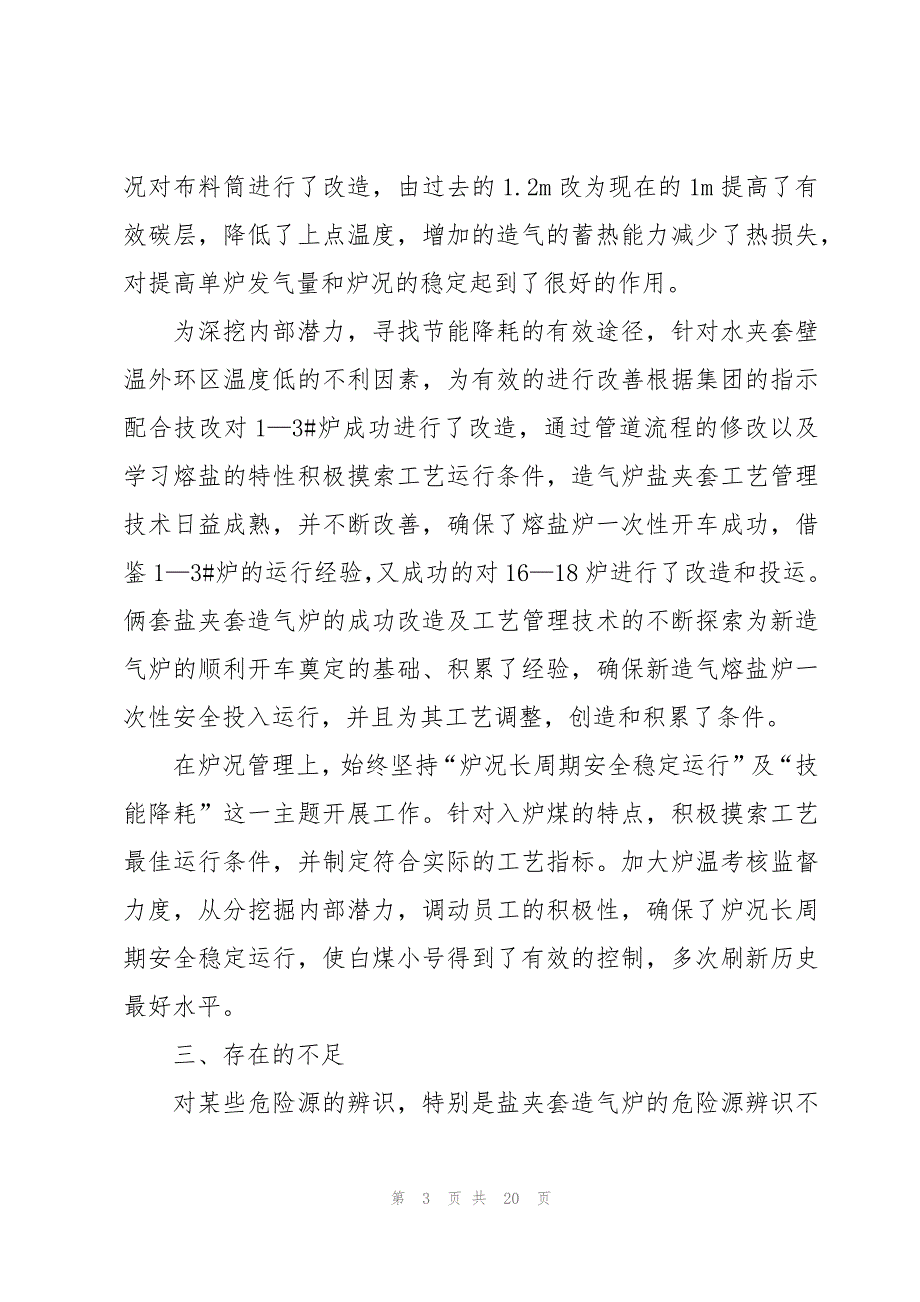 况对布料筒进行了改造，由过去的1.2m改为现在的1m提高了有
效碳层，降低了上点温度，增加的造气的蓄热能力减少了热损失，
对提高单炉发气量和炉况的稳定起到了很好的作用。
为深挖内部潜力，寻找节能降耗的有效途径，针对水夹套壁
温外环区温度低的不利因素，为有效的进行改善根据集团的指示
配合技改对1—3#炉成功进行了改造，通过管道流程的修改以及
学习熔盐的特性积极摸索工艺运行条件，造气炉盐夹套工艺管理
技术日益成熟，并不断改善，确保了熔盐炉一次性开车成功，借
鉴1—3#炉的运行经验，又成功的对16—18炉进行了改造和投运。
俩套盐夹套造气炉的成功改造及工艺管理技术的不断探索为新造
气炉的顺利开车奠定的基础、积累了经验，确保新造气熔盐炉一
次性安全投入运行，并且为其工艺调整，创造和积累了条件。
在炉况管理上，始终坚持“炉况长周期安全稳定运行”及“技
能降耗”这一主题开展工作。针对入炉煤的特点，积极摸索工艺
最佳运行条件，并制定符合实际的工艺指标。加大炉温考核监督
力度，从分挖掘内部潜力，调动员工的积极性，确保了炉况长周
期安全稳定运行，使白煤小号得到了有效的控制，多次刷新历史
最好水平。
三、存在的不足
对某些危险源的辨识，特别是盐夹套造气炉的危险源辨识不
第 3 页 共 20 页